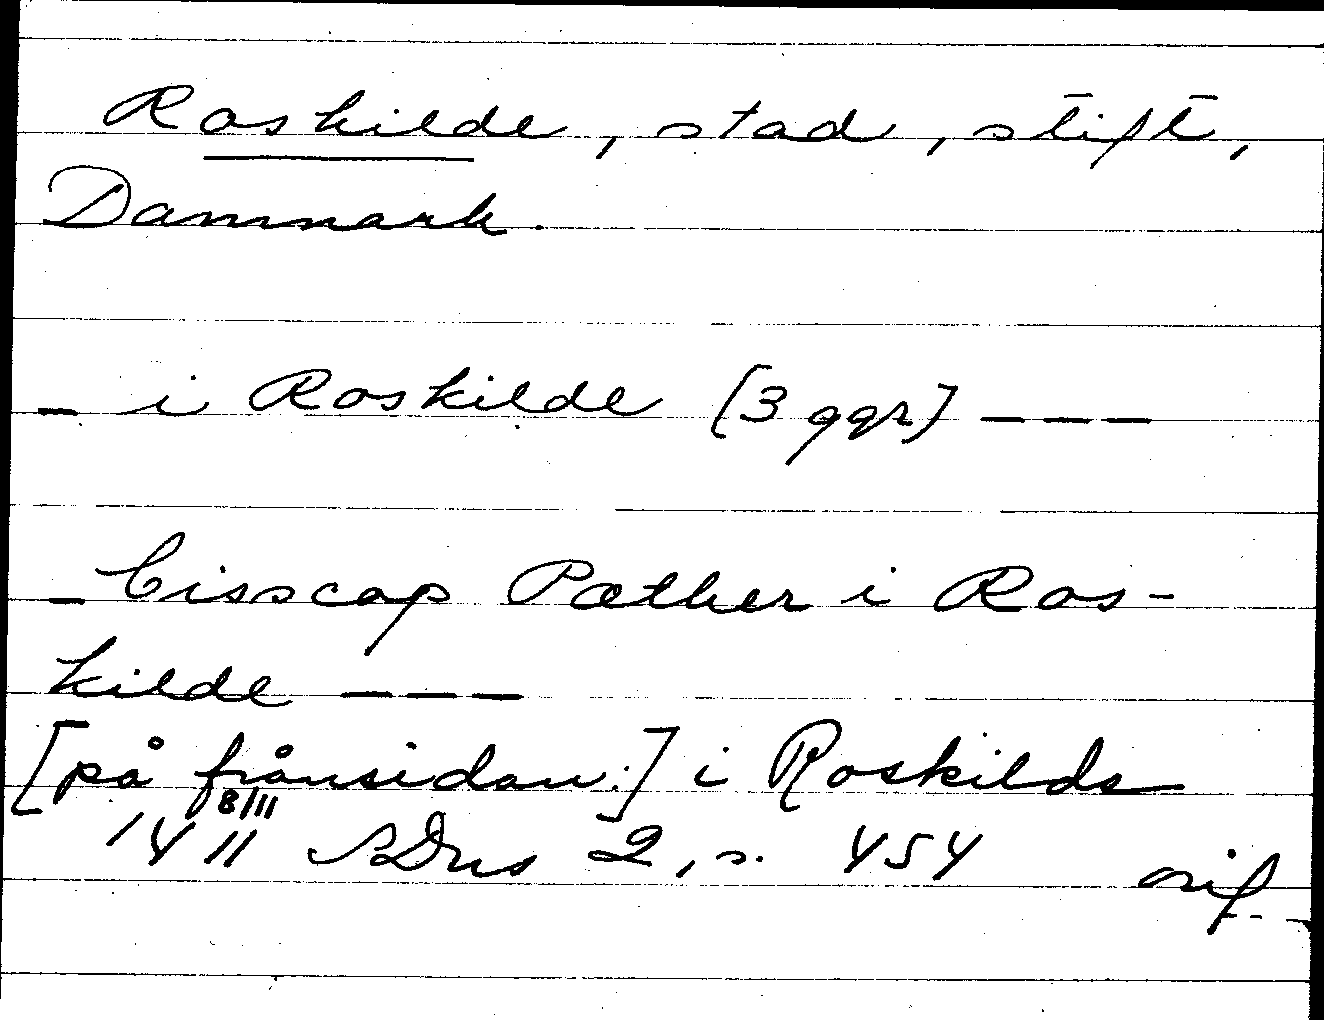 Roskilde, stad, stift,
Danmark.
– i Roskilde [3 ggr] – – –
– bisscop Pæther i Ros-
kilde – – –
[på frånsidan:] i Roskilds
8/11
1411 SDns 2, s. 454 orig.